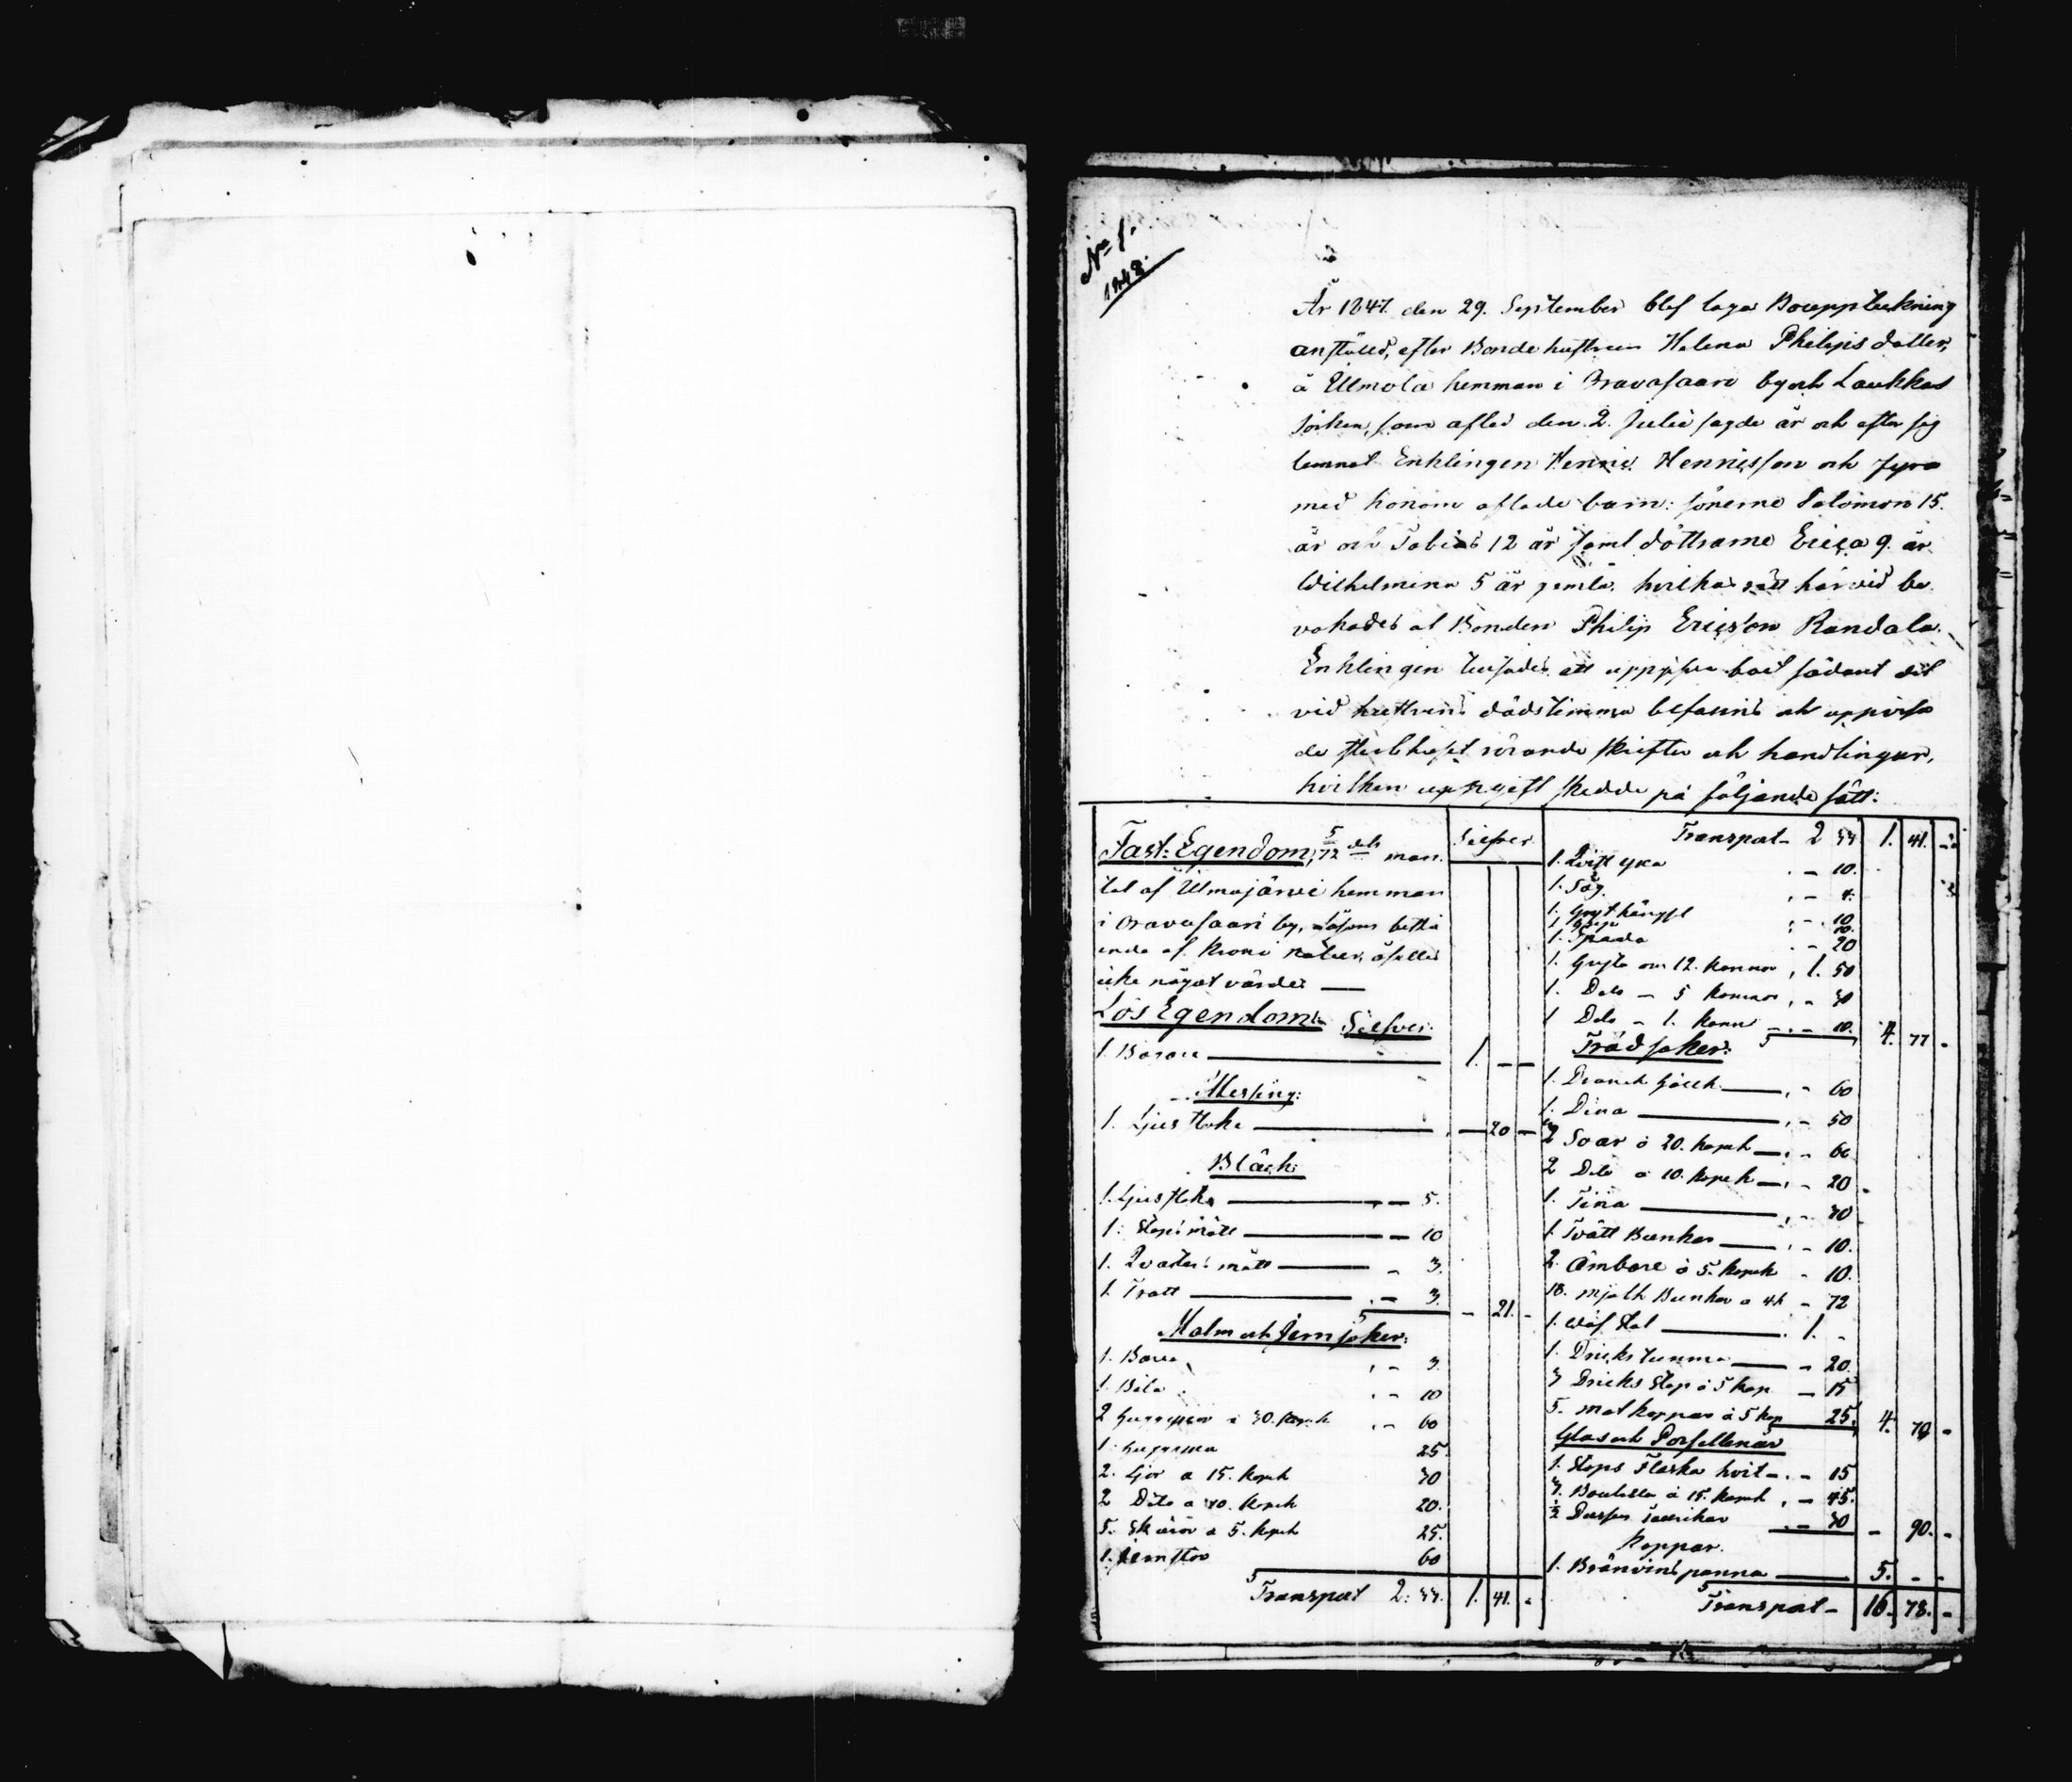 No 1.
1848.
År 1847. den 29. September blef laga Bouppteckning
anstäld, efter Bondehustrun Helena Philipsdotter,
å Ulmola hemman i Oravasaari by och Laukkas
Socken, som afled den 2. Julii sagde år och efter sig
lemnat Enklingen Henric Henricsson och fyra
med honom aflade barn: sönerne Salomon 15.
år och Tobias 12 år samt döttrarne Erica 9. år
Wilhelmina 5 år gamla, hvilkas rätt härvid be
vakades af Bonden Philip Ericsson Randala.
Enklingen att uppgifva boet sådant det
vid hustruns dödstimma befanns och uppvisa
de sterbhuset rörande skrifter och handlingar,
hvilken uppgift skedde på följande sätt:
Fast: Egendom, 5/72 dels man
tal af Ulmajärvi hemman
i Oravasaari by,
ende af åsattes
icke något värde —
Lös Egendom: Silfver.
Silfver
1. — 1. — —
Messing:
1. Ljusstake — 20 —
Bläck:
1. Ljusstake — 5.
1. Stops mått — 10
1. Qvarters mått — 3.
1. Tratt — 3. — 21. -
Malm och Jernsaker:
1. — 3.
1. Bila — 10
2 à 30. kopek — 60
1. 25.
2. Ljor a 15. kopek 30
2 Dito a 10. kopek 20.
5. Skäror a 5. kopek 25.
1. Jernstör 60
Transport 2. 33. 1. 41. -
Transport 2 33 1. 41. -
1. — 10.
1. Såg — 4.
1. — 10
1 — 10.
1. Spada — 20
1. Gryta om 12. kannor, 1. 50
1. Dito - 5 kannor, - 30
1 Dito - 1. kann - 10. 4. 77 -
Trädsaker:
1. — 60
1. — 50
2 Soar à 30. kopek — 60
2 Dito a 10. kopek — 20
1. Tina — 30
1. Tvätt Bunka — 10.
2. Ämbare à 5. kopek - 10.
18. mjölk Bunkar a 4 k - 72
1. Wäfstol — 1. -
1. Drickstunna — 20.
3 Dricks Stop à 5 kop — 15
5. matkoppar à 5 kop 25. 4. 72 -
Glas och Porsellener
1. Stops Flaska hvit - 15
3. Boutella à 15. kopek, - 45.
1/2 Dussin Tallrikar - 30 - 90. -
Koppar.
1. Brännvins panna — 5. - -
Transport - 16. 78. -